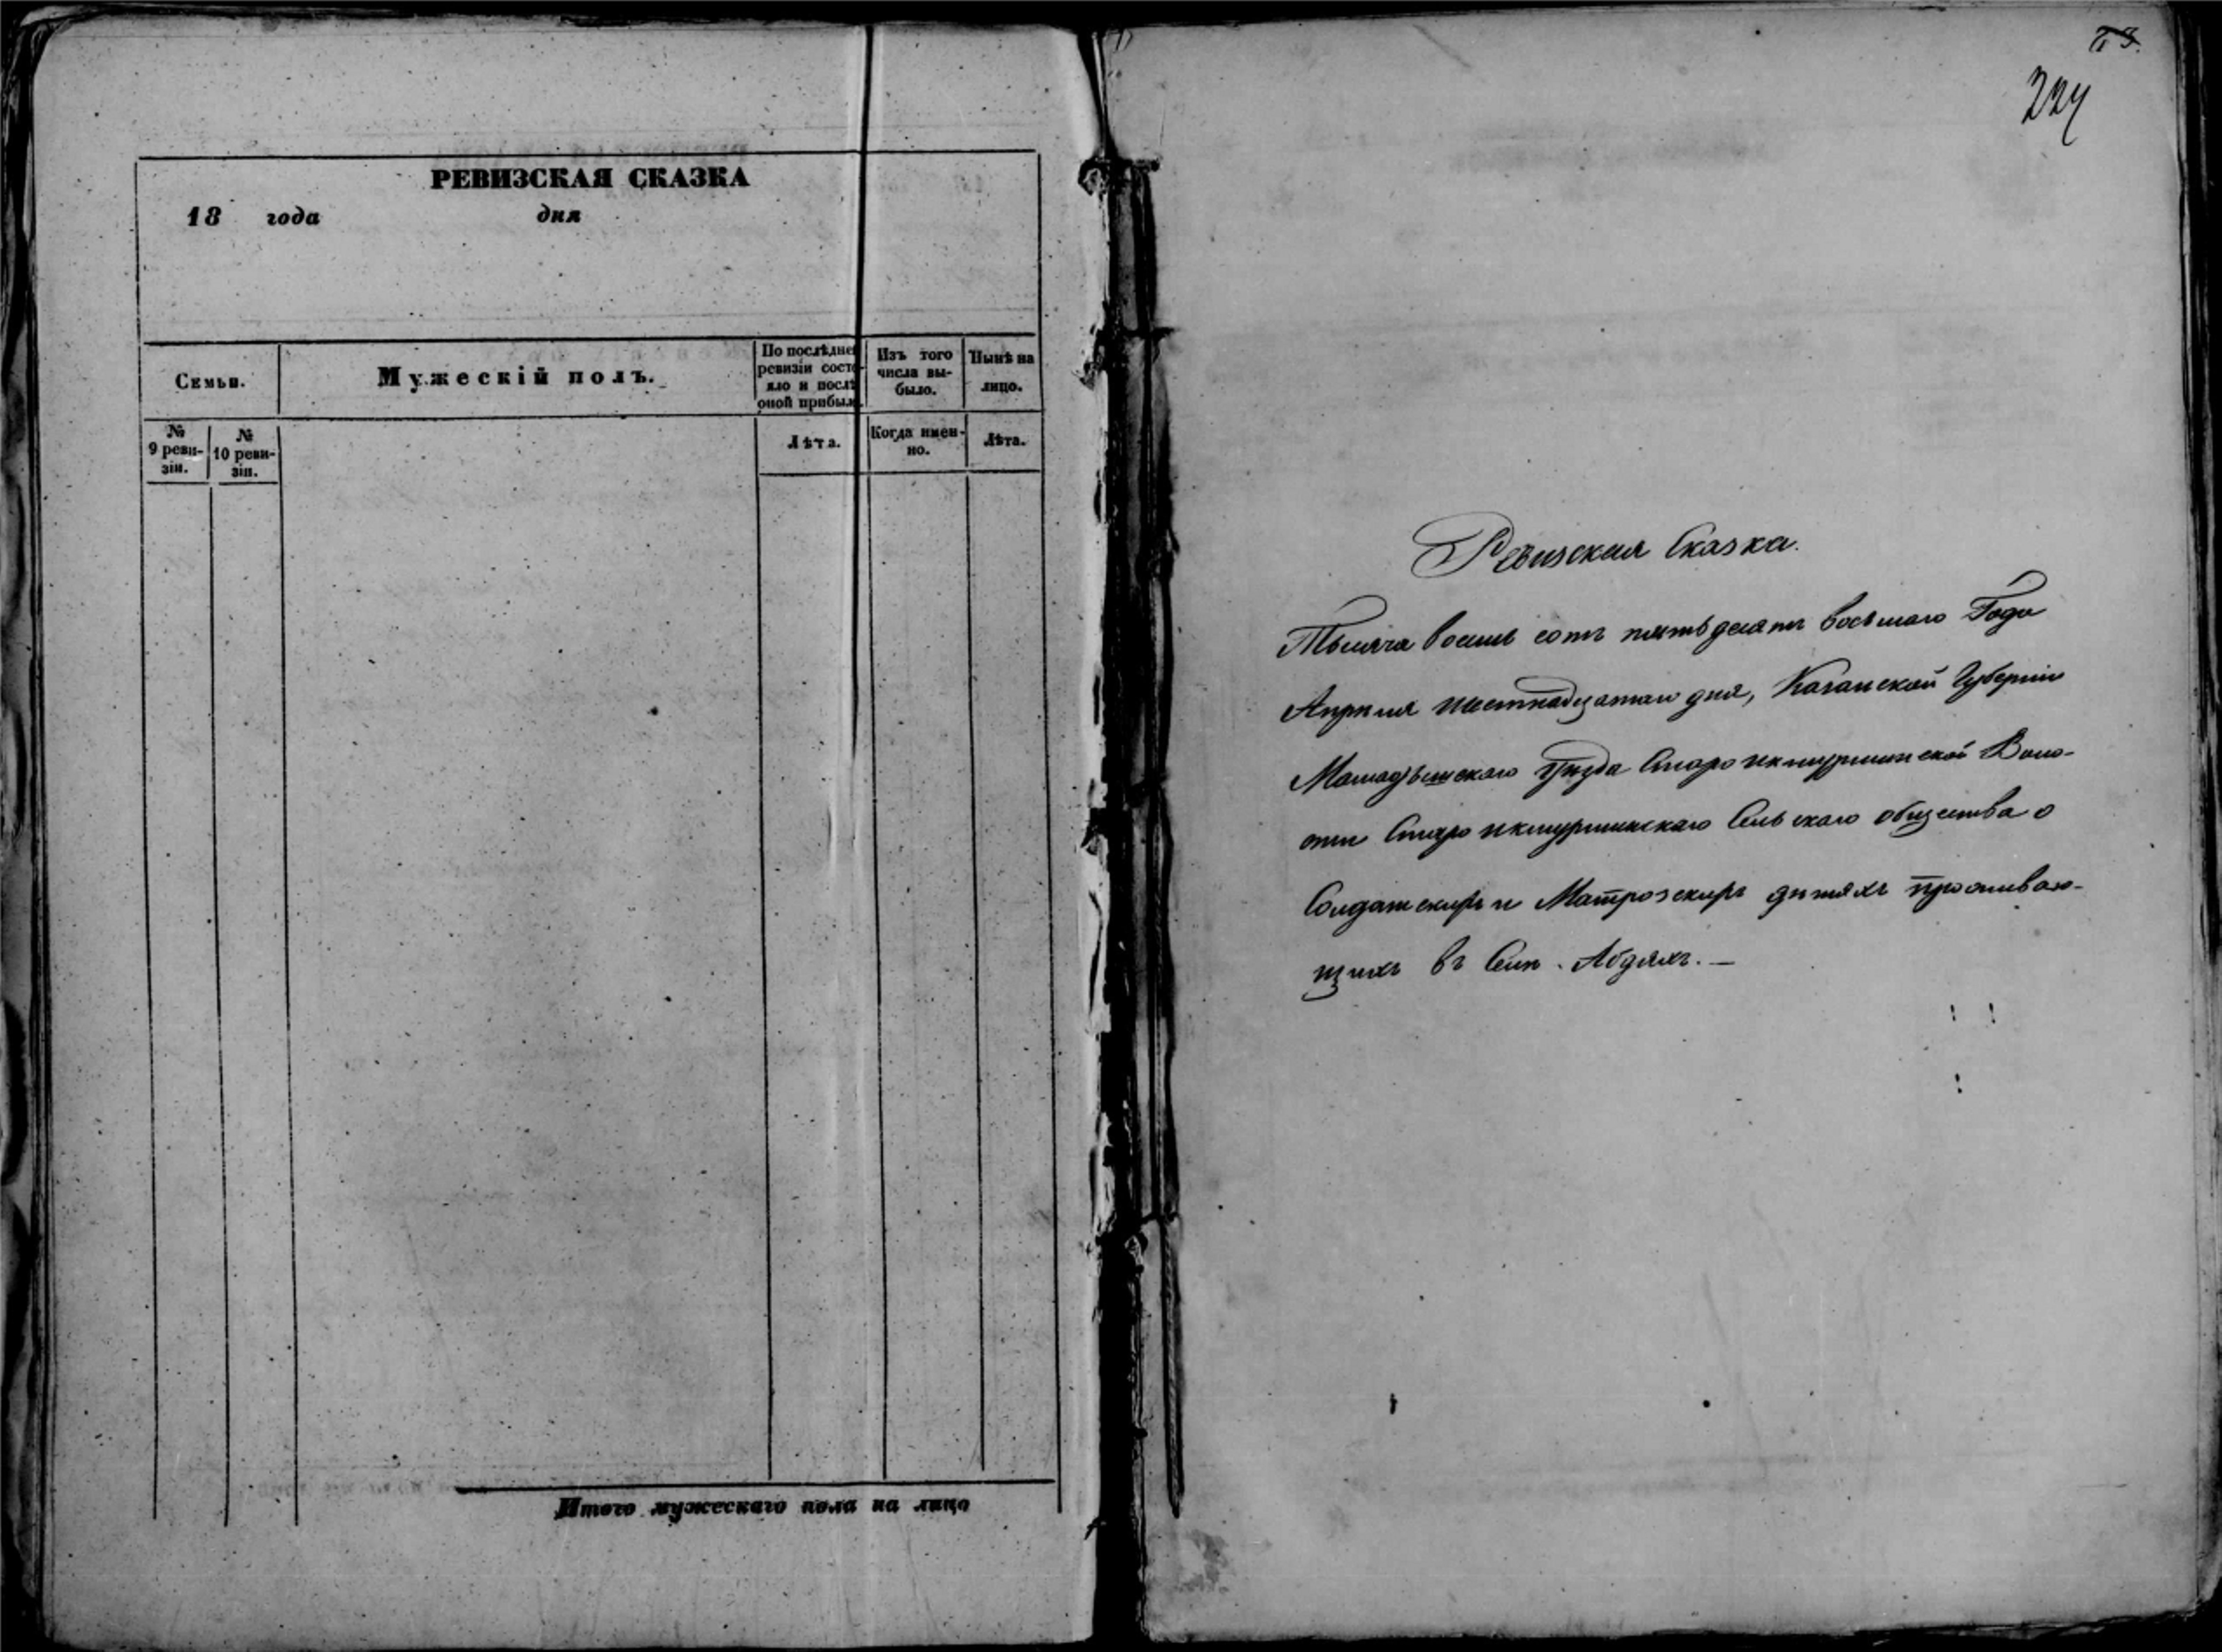 РЕВИЗСКАЯ СКАЗКА
18 года дня
Семьи.
Мужескій полъ.
По послѣдней
ревизіи состо-
яло и послѣ
оной прибыло.
Изъ того
числа вы-
было.
Нынѣ на
лицо.
№
9 реви-
зіи.
№
10 реви-
зіи.
Лѣта.
Когда имен-
но.
Лѣта.
Итого мужескаго пола на лицо
224
Ревизская Сказка.
Тысяча восемь сотъ пятьдесятъ восьмаго Года
Апрѣля шестнадцатаго дня, Казанской Губерніи
Мамадышскаго Уѣзда Староикшурминской Воло-
сти Староикшурминскаго Сельскаго общества о
Солдатскихъ и Матрозскихъ дѣтяхъ проживаю-
щихъ въ Селѣ. Абдяхъ. —